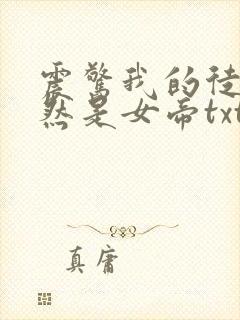 震驚我的徒
然是女帝txt
真庸